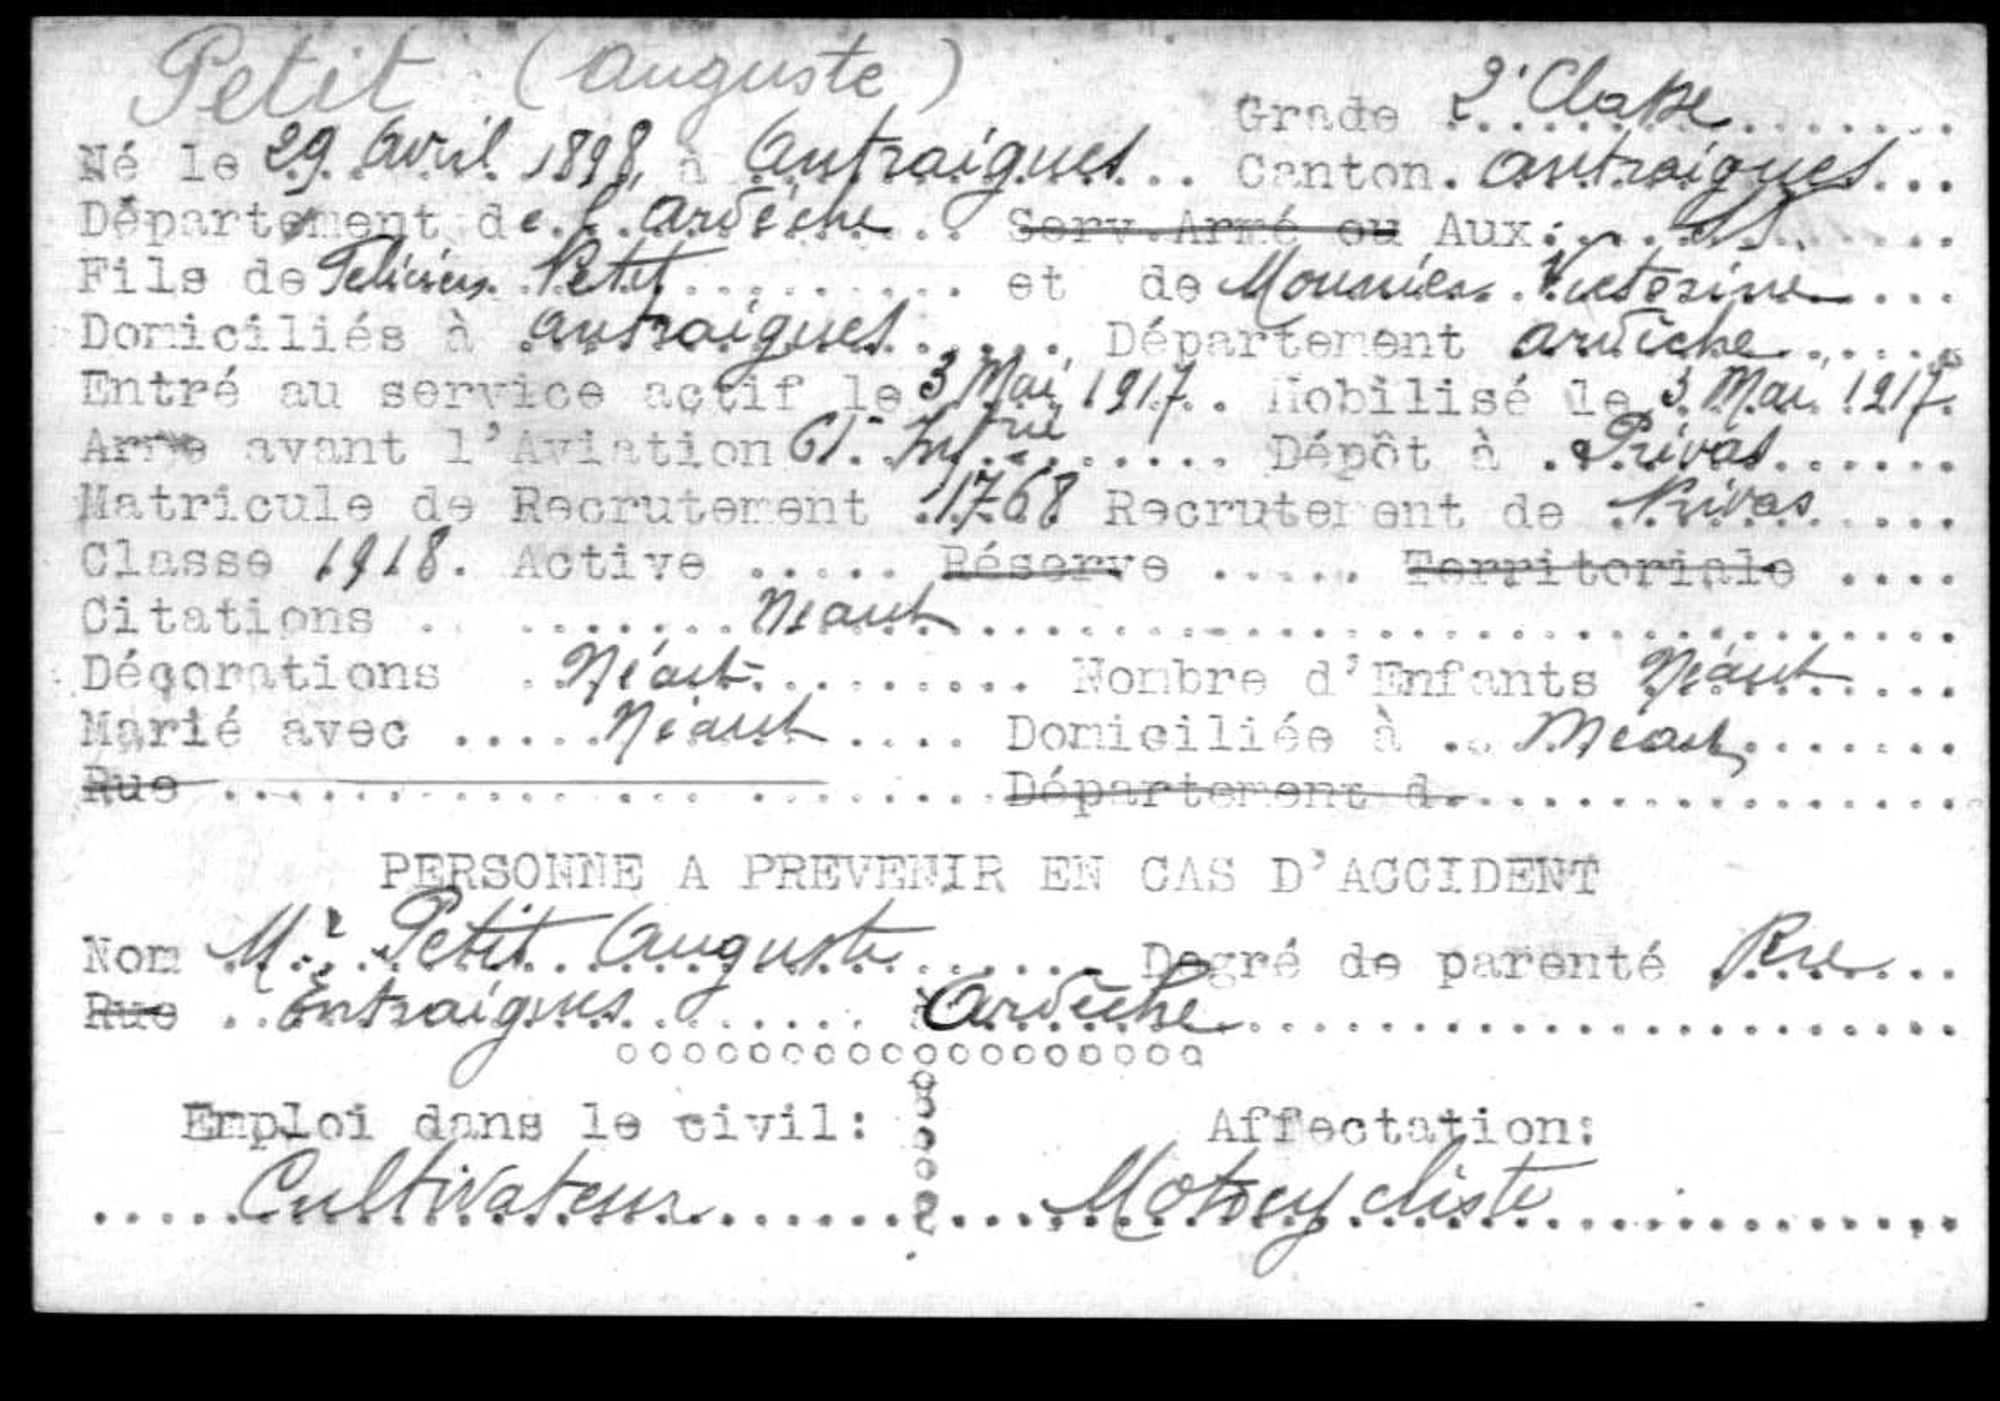 Petit (Auguste)
Grade 2e Classe
Né le 29 Avril 1898, à Antraigues Canton. Antraigues
Département de l'Ardèche Serv. Armé ou Aux:
Fils de Felicien Petit et de Mounier Victorine
Domiciliés à Antraigues Département Ardèche
Entré au service actif le 3 Mai 1917. Mobilisé le 3 Mai 1917.
Arme avant l'Aviation 61e Inf.rie Dépôt à Privas
Matricule de Recrutement 1768 Recrutement de Privas
Classe 1918. Active ..... Réserve ..... Territoriale ....
Citations Néant
Décorations Néant Nombre d'Enfants Néant
Marié avec Néant Domiciliée à Néant
Rue Département d
PERSONNE A PREVENIR EN CAS D'ACCIDENT
Nom Mr Petit Auguste Degré de parenté
Rue Entraigues Ardèche
ooooooooooooooooooo
Emploi dans le civil: Affectation:
Cultivateur Motocycliste